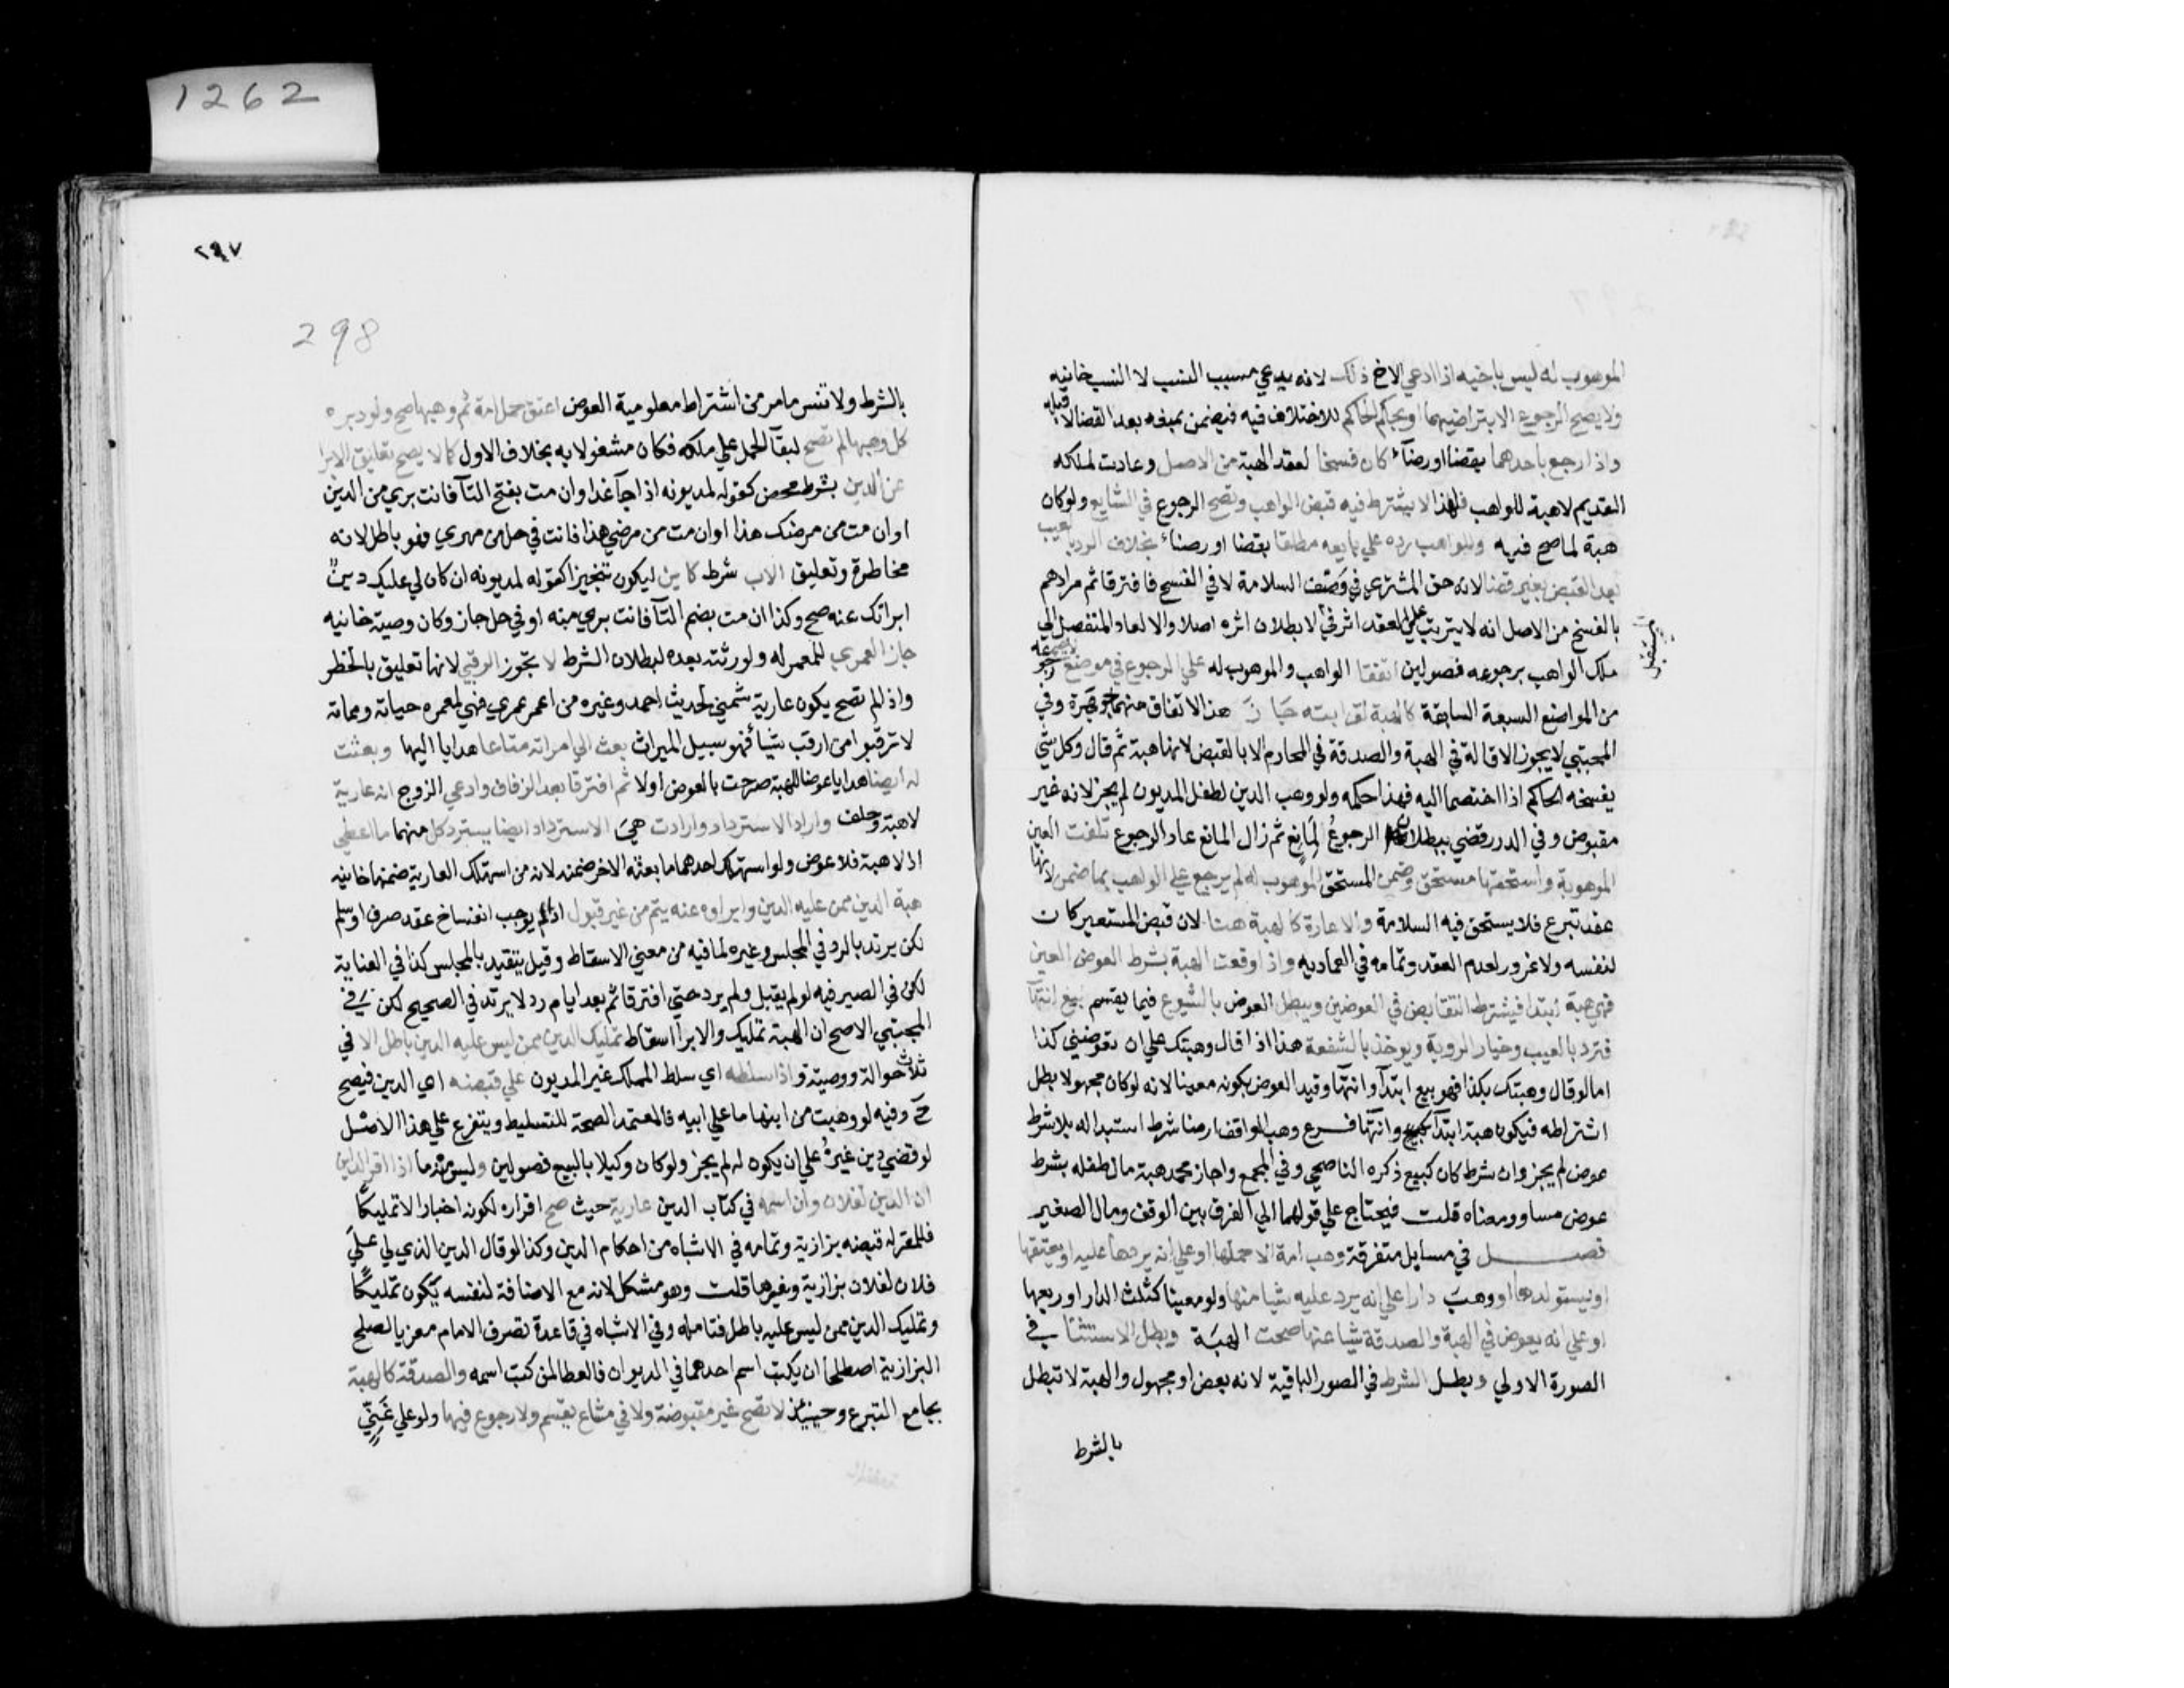 1262
الموهوب له ليس باخيه اذا ادعي الاخ ذلك لانه يدعي مسبب النسب لا النسب خانيه
ولا يصح الرجوع الا بتراضيهما او بحكم الحاكم للاختلاف فيه فيضمن بمنعه بعد القضا لا قبله
واذا رجع باحدهما بقضا او رضاء كان فسخا لعقد الهبة من الاصل وعادت لملكه
القديم لا هبة للواهب فلهذا لا يشترط فيه قبض الواهب وتصح الرجوع في الشايع ولو كان
هبة لما صح فيه وللواهب رده علي بايعه مطلقا بقضا او رضاء بخلاف الرد بالعيب
بعد القبض بغير قضا لان حق المشتري في وصف السلامة لا في الفسخ فافترقا ثم مرادهم
بالفسخ من الاصل انه لا يترتب علي العقد اثر في الابطلان اثره اصلا والا لعاد المنفصل الي
المستقبل
ملك الواهب برجوعه فصولين اتفقا الواهب والموهوب له علي الرجوع في موضع لا يصح رجوعه
من المواضع السبعة السابقة كالهبة لقرابته جاز هذا الاتفاق منهما جوهرة وفي
المجتبي لا يجوز الاقالة في الهبة والصدقة في المحارم الا بالقبض لانها هبة ثم قال وكل شي
يفسخه الحاكم اذا اختصما اليه فهذا حكمه ولو وهب الدين لطفل المديون لم يجز لانه غير
مقبوض وفي الدرر قضي ببطلان الرجوع لمانع ثم زال المانع عاد الرجوع تلفت العين
الموهوبة واستحقها مستحق وضمن المستحق الموهوب له لم يرجع علي الواهب بما ضمن لانها
عقد تبرع فلا يستحق فيه السلامة والاعارة كالهبة هنا لان قبض المستعير كان
لنفسه ولا غرور لعدم العقد وتمامه في العماديه واذا وقعت الهبة بشرط العوض العين
فهي هبة ابتدا فيشترط التقابض في العوضين ويبطل العوض بالشيوع فيما يقسم بيع انتهآ
فترد بالعيب وخيار الروية ويوخذ بالشفعة هذا اذا قال وهبتك علي ان تعوضني كذا
اما لو قال وهبتك بكذا فهو بيع ابتدآ وانتهآ وقيد العوض بكونه معينا لانه لو كان مجهولا بطل
اشتراطه فيكون هبة ابتدآ وانتهآ فرع وهب الواقف ارضا شرط استبداله بلا شرط
عوض لم يجز وان شرط كان كبيع ذكره الناصحي وفي المجمع واجاز محمد هبة مال طفله بشرط
عوض مساو ومنعاه قلت فيحتاج علي قولهما الي الفرق بين الوقف ومال الصغير
فصل في مسايل متفرقة وهب امة الا حملها او علي انه يردها عليه او يعتقها
او يستولدها او وهب دارا علي انه يرد عليه شيا منها ولو معينا كثلث الدار او ربعها
او علي انه يعوض في الهبة والصدقة شيا عنها صحت الهبة وبطل الاستثنا في
الصورة الاولي وبطل الشرط في الصور الباقية لانه بعض او مجهول والهبة لا تبطل
بالشرط
٢٩٧
298
بالشرط ولا تنس ما مر من اشتراط معلومية العوض اعتق حمل امة ثم وهبها صح ولو دبره
كل وهبها لم تصح لبقآ الحمل علي ملكه فكان مشغولا به بخلاف الاول كما لا يصح تعليق الابرا
عن الدين بشرط محض كقوله لمديونه اذا جآ غدا وان مت بفتح التآ فانت بري من الدين
او ان مت من مرضك هذا او ان مت من مرضي هذا فانت في حل من مهري فهو باطل لانه
مخاطرة وتعليق الاب شرط كاين ليكون تنجيزا كقوله لمديونه ان كان لي عليك دين
ابراتك عنه صح وكذا ان مت بضم التآ فانت بري منه او في حل جاز وكان وصية خانيه
جاز العمري للمعمر له ولورثته بعده لبطلان الشرط لا تجوز الرقبي لانها تعليق بالخطر
واذا لم تصح يكون عارية شمني لحديث احمد وغيره من اعمر عمري فهي لمعمره حياته ومماته
لا ترقبوا من ارقب شيا فهو سبيل الميراث بعث الي امراته متاعا هدايا اليها وبعثت
له ايضا هدايا عوضا للهبة صرحت بالعوض اولا ثم افترقا بعد الزفاف وادعي الزوج انه عارية
لا هبة وحلف واراد الاسترداد وارادت هي الاسترداد ايضا يسترد كل منهما ما اعطي
اذ لا هبة فلا عوض ولو استهلك احدهما ما بعثه الاخر ضمنه لان من استهلك العارية ضمنها خانيه
هبة الدين ممن عليه الدين وابراوه عنه يتم من غير قبول اذا لم يوجب انفساخ عقد صرف او سلم
لكن يرتد بالرد في المجلس وغيره لما فيه من معني الاسقاط وقيل يتقيد بالمجلس كذا في العناية
لكن في الصيرفيه لو لم يقبل ولم يرد حتي افترقا ثم بعد ايام رد لا يرتد في الصحيح لكن في
المجتبي الاصح ان الهبة تمليك والابرا اسقاط تمليك الدين ممن ليس عليه الدين باطل الا في
ثلاث حوالة ووصية واذا سلطه اي سلط المملك غير المديون علي قبضه اي الدين فيصح
ح وفيه لو وهبت من ابنها ما علي ابيه فالمعتمد الصحة للتسليط ويتفرع علي هذا الاصل
لو قضي دين غيره علي ان يكون له لم يجز ولو كان وكيلا بالبيع فصولين وليس منه ما اذا اقر الداين
ان الدين لفلان وان اسمه في كتاب الدين عارية حيث صح اقراره لكونه اخبارا لا تمليكا
فللمقر له قبضه بزازية وتمامه في الاشباه من احكام الدين وكذا لو قال الدين الذي لي علي
فلان لفلان بزازية وغيرها قلت وهو مشكل لانه مع الاضافة لنفسه يكون تمليكا
وتمليك الدين ممن ليس عليه باطل فتامله وفي الاشباه في قاعدة تصرف الامام معزيا لصلح
البزازية اصطلحا ان يكتب اسم احدهما في الديوان فالعطا لمن كتب اسمه والصدقة كالهبة
بجامع التبرع وحينئذ لا تصح غير مقبوضة ولا في مشاع يقسم ولا رجوع فيها ولو علي غني